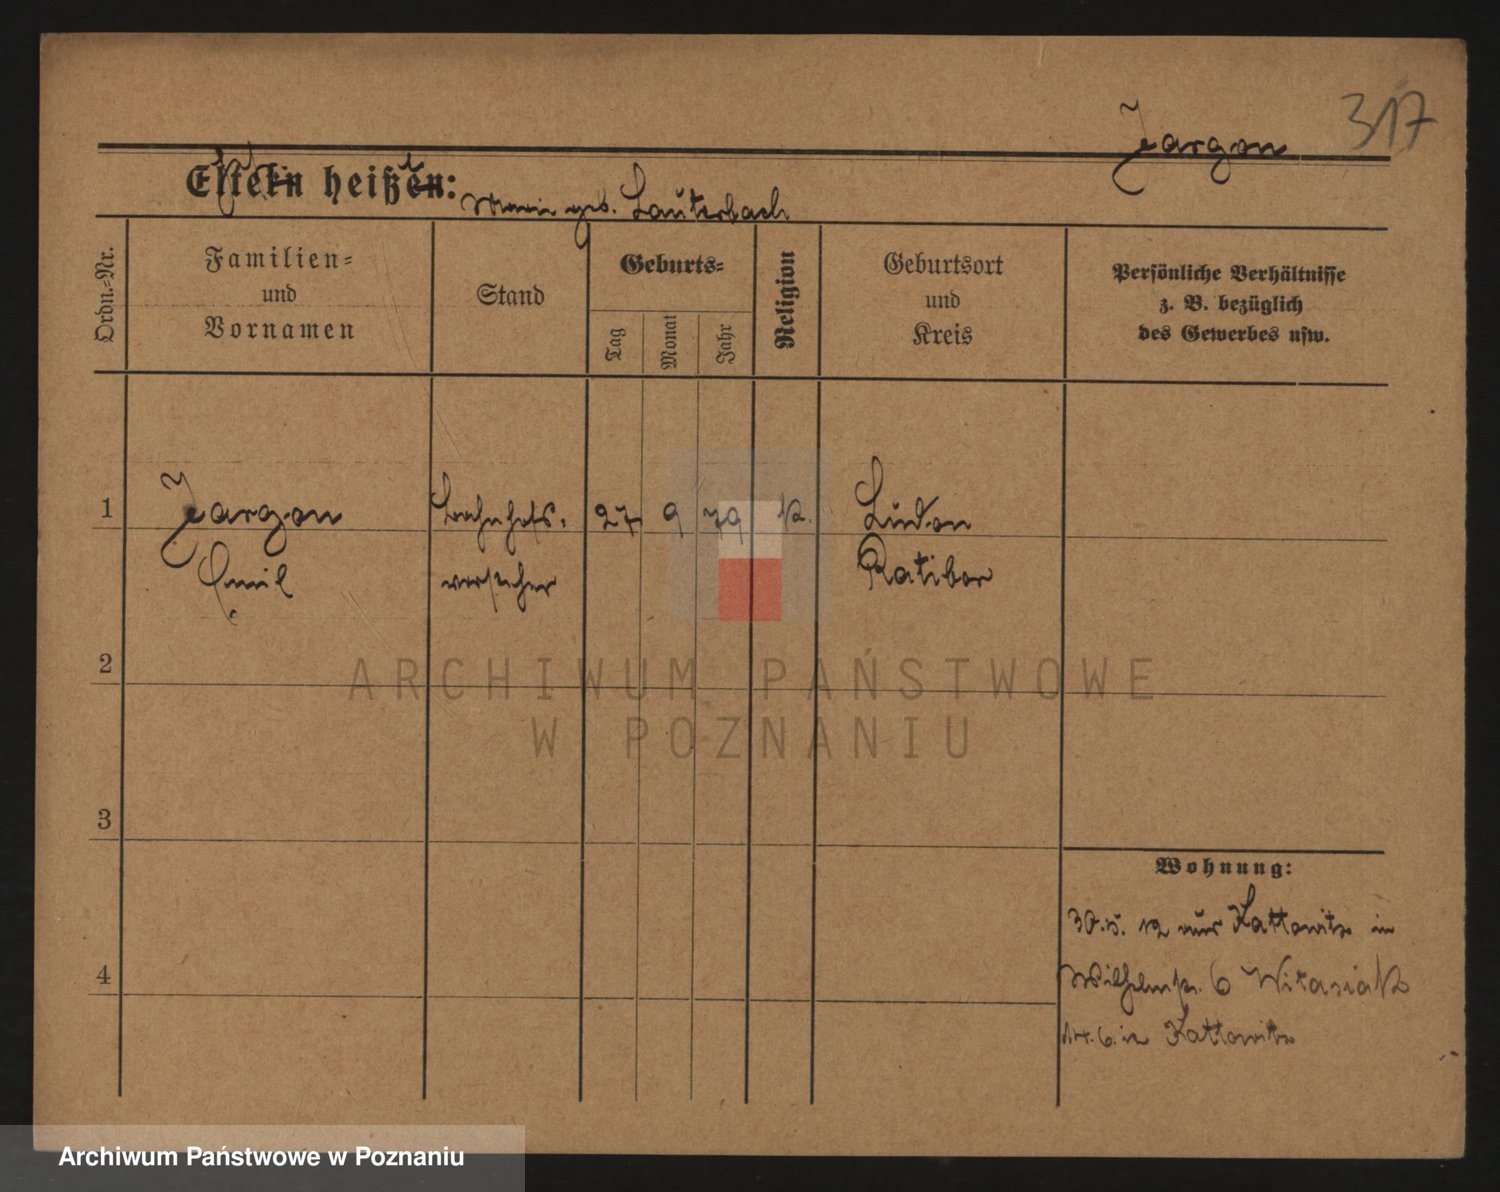 317
Jargon
Eltern heißen:
Mutter heißt:
Marie geb. Lauterbach
Ordn.=Nr.
Familien=
und
Vornamen
Stand
Geburts=
Tag
Monat
Jahr
Religion
Geburtsort
und
Kreis
Persönliche Verhältnisse
z. B. bezüglich
des Gewerbes usw.
1 Jargon Bahnhofs. 27 9 79 k. Ludon
Emil vorsteher Ratibor
2
3
4
Wohnung:
30.5. 12 Kattowitz in
Wilhelmstr. 6 Witasiak
14.6.12 Kattowitz
ARCHIWUM PAŃSTWOWE
W POZNANIU
Archiwum Państwowe w Poznaniu